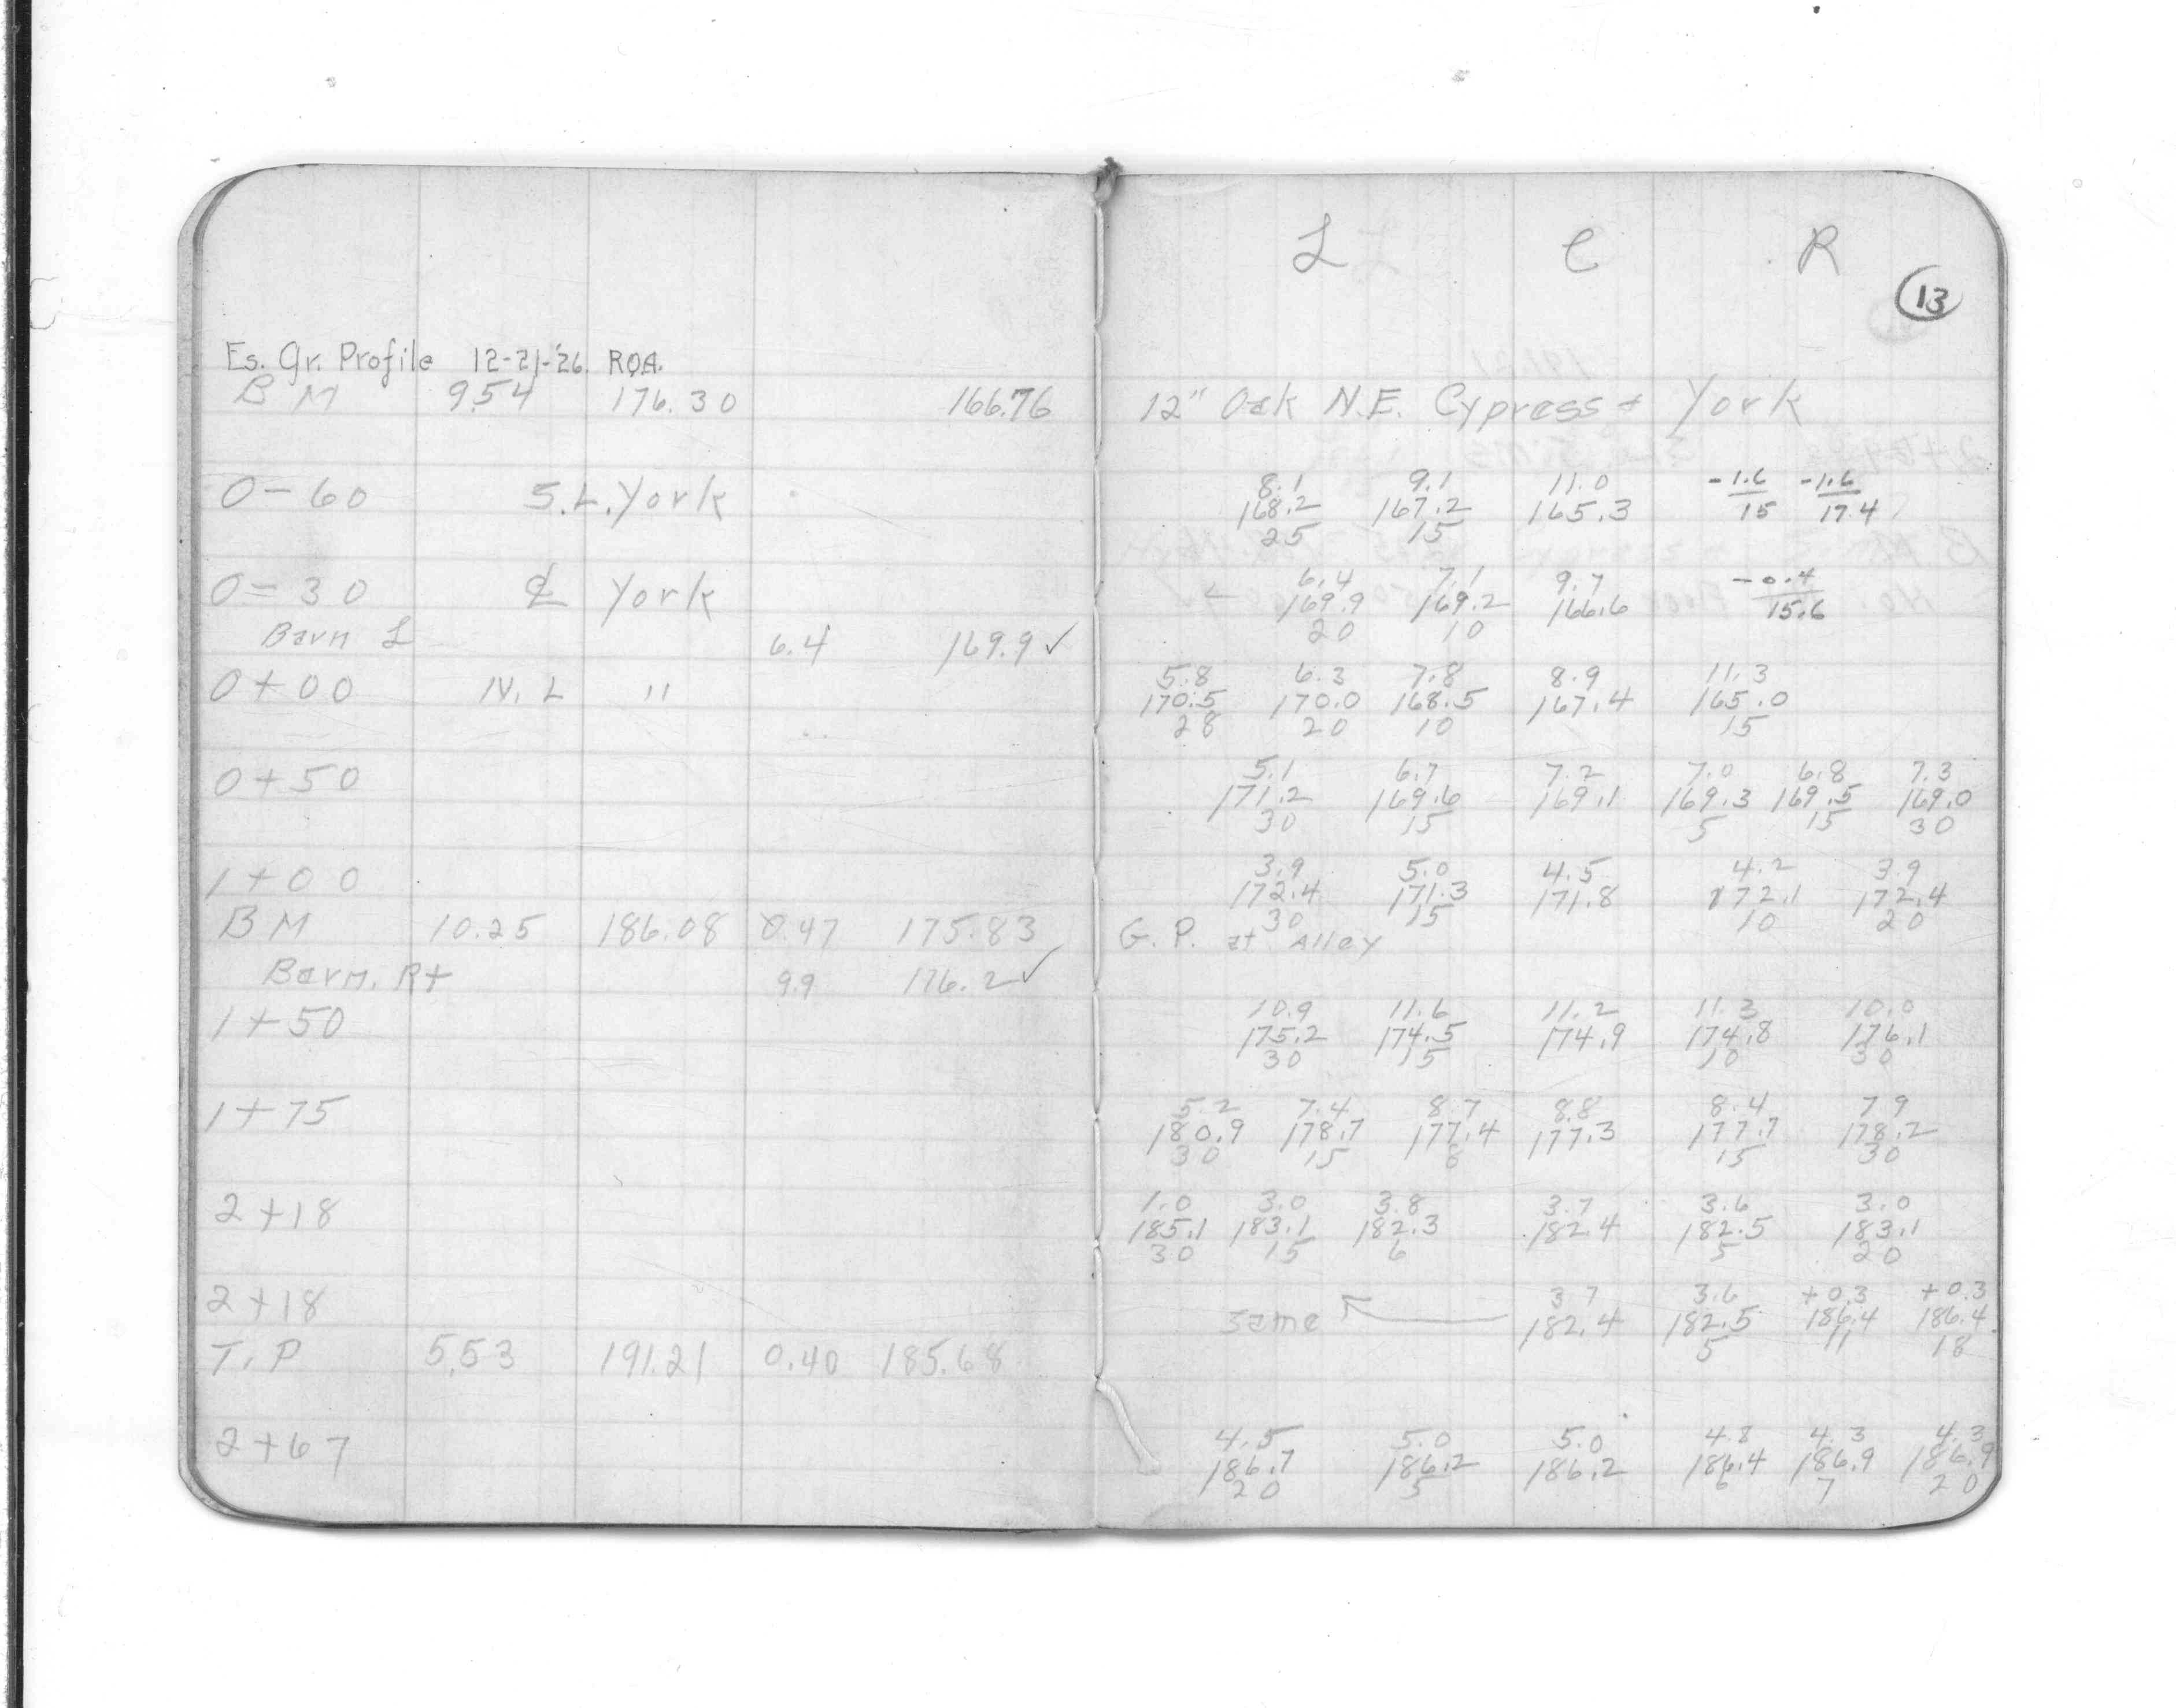 Es. Gr. Profile 12-21-'26. R.O.A.
B M 9.54 176.30 166.76
0-60 S.L. York
0=30 ℄ York
Barn L 6.4 169.9 ✓
0+00 N.L "
0+50
1+00
B M 10.25 186.08 0.47 175.83
Barn. Rt 9.9 176.2 ✓
1+50
1+75
2+18
2+18
T.P 5.53 191.21 0.40 185.68
2+67
L C R
13
12" Oak N.E. Cypress + York
8.1 9.1 11.0 -1.6 -1.6
168.2 167.2 165.3 15 17.4
25 15
6.4 7.1 9.7 -0.4
169.9 169.2 166.6 15.6
20 10
5.8 6.3 7.8 8.9 11.3
170.5 170.0 168.5 167.4 165.0
28 20 10 15
5.1 6.7 7.2 7.0 6.8 7.3
171.2 169.6 169.1 169.3 169.5 169.0
30 15 5 15 30
3.9 5.0 4.5 4.2 3.9
172.4 171.3 171.8 172.1 172.4
30 15 10 20
G.P. at Alley
10.9 11.6 11.2 11.3 10.0
175.2 174.5 174.9 174.8 176.1
30 15 10 30
5.2 7.4 8.7 8.8 8.4 7.9
180.9 178.7 177.4 177.3 177.7 178.2
30 15 8 15 30
1.0 3.0 3.8 3.7 3.6 3.0
185.1 183.1 182.3 182.4 182.5 183.1
30 15 6 5 20
3.7 3.6 +0.3 +0.3
same 182.4 182.5 186.4 186.4
5 11 18
4.5 5.0 5.0 4.8 4.3 4.3
186.7 186.2 186.2 186.4 186.9 186.9
20 5 6 7 20